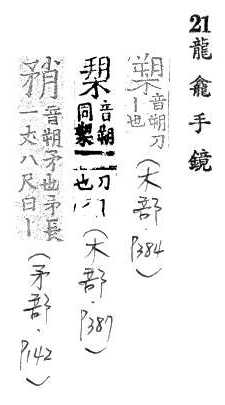 21 龍龕手鏡
槊 音朔刀丨也 (木部·P384)
音朔同 刀丨也 (木部·P387)
矟 音朔矛也矛長一丈八尺曰丨 (矛部·P142)